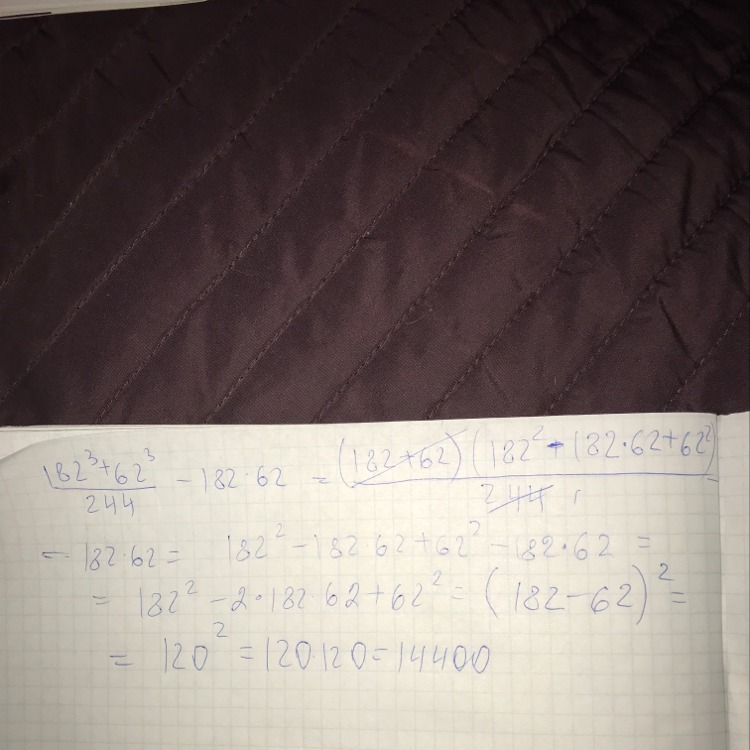 (182³+62³)/244 − 182·62 = (182+62)(182²-182·62+62²)/244 −
− 182·62 = 182² − 182·62 + 62² − 182·62 =
= 182² − 2·182·62 + 62² = (182−62)² =
= 120² = 120·120 = 14400